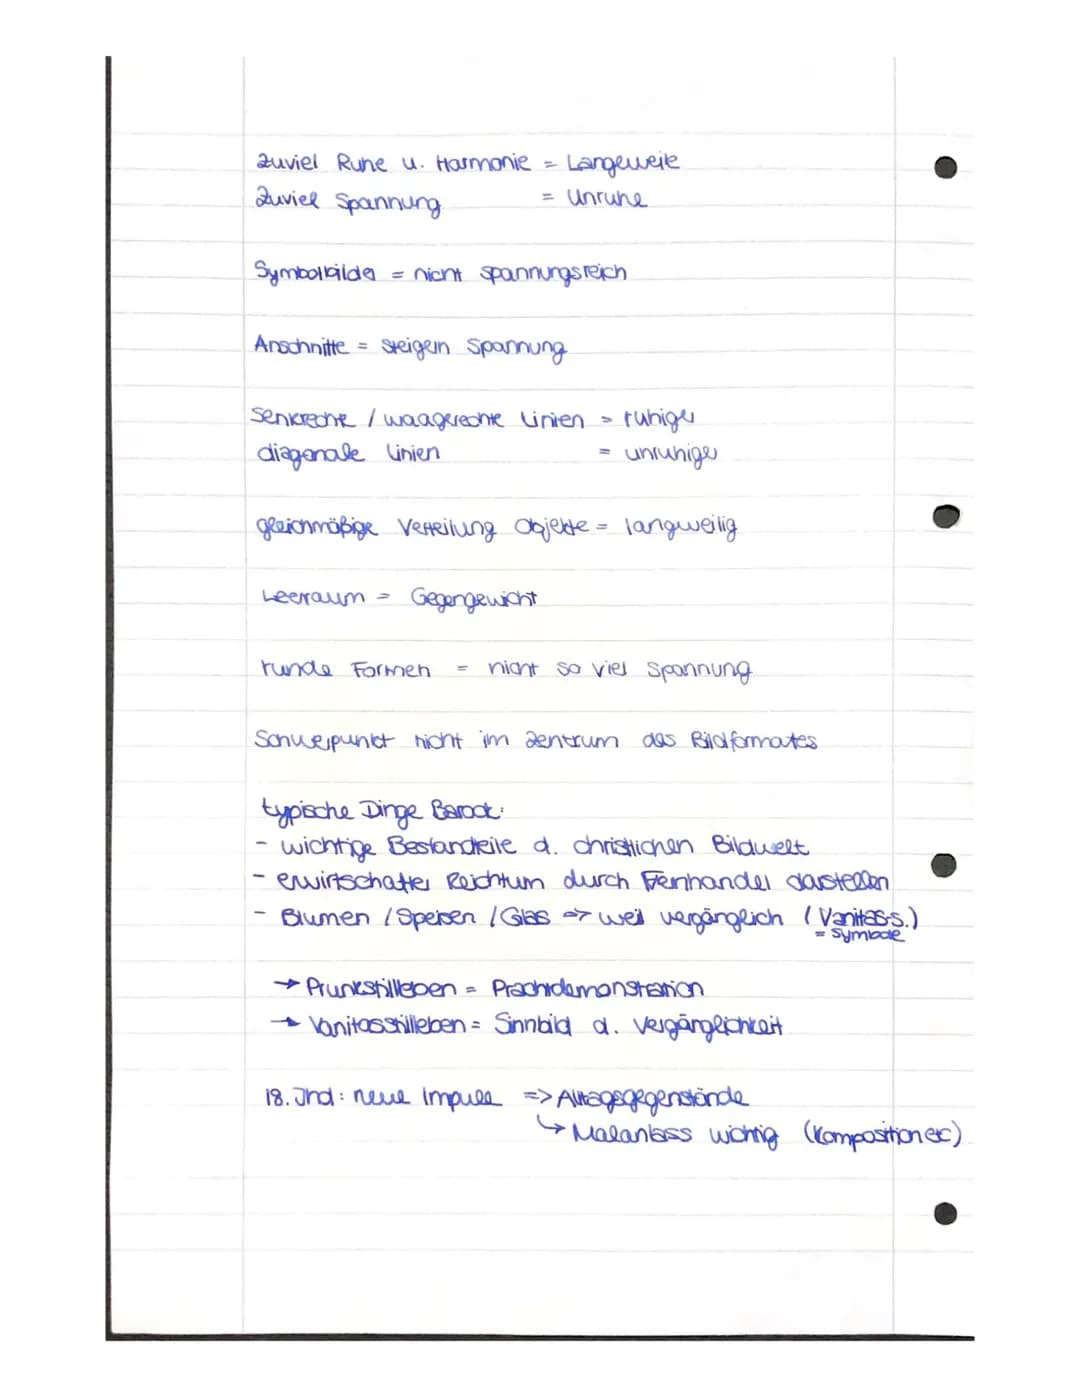 Zuviel Ruhe u. Harmonie = Langeweile
Zuviel Spannung = Unruhe
Symbolbilder = nicht spannungsreich
Anschnitte = steigern Spannung
Senkrechte / waagerechte Linien = ruhiger
diagonale Linien = unruhiger
gleichmäßige Verteilung Objekte = langweilig
Leerraum = Gegengewicht
runde Formen = nicht so viel Spannung
Schwerpunkt nicht im Zentrum des Bildformates
typische Dinge Barock:
- wichtige Bestandteile d. christlichen Bildwelt
- erwirtschafter Reichtum durch Fernhandel darstellen
- Blumen / Speisen / Glas => weil vergänglich (Vanitass.)
= Symbole
→ Prunkstillleben = Prachtdemonstration
→ Vanitasstillleben = Sinnbild d. Vergänglichkeit
18. Jhd: neue Impulse => Alltagsgegenstände
↳ Malanlass wichtig (Komposition etc)